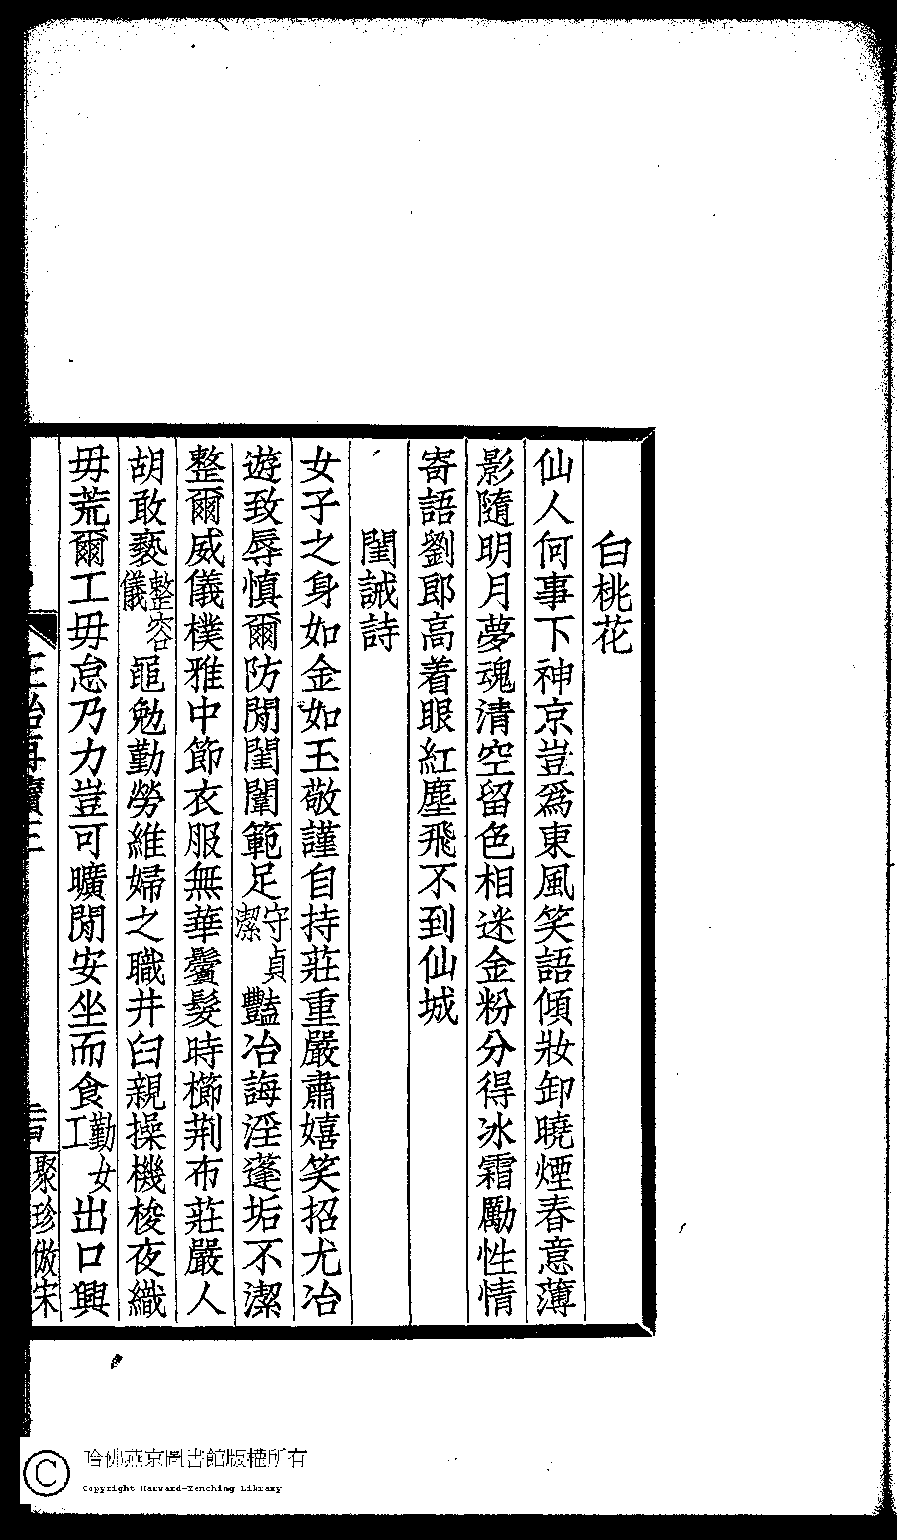 白桃花
仙人何事下神京豈爲東風笑語傾妝卸曉煙春意薄
影隨明月夢魂清空留色相迷金粉分得冰霜勵性情
寄語劉郎高着眼紅塵飛不到仙城
閨誡詩
女子之身如金如玉敬謹自持莊重嚴肅嬉笑招尤冶
遊致辱慎爾防閑閨闈範足守貞潔豔冶誨淫蓬垢不潔
整爾威儀樸雅中節衣服無華鬢髮時櫛荆布莊嚴人
胡敢褻整容儀黽勉勤勞維婦之職井臼親操機梭夜織
毋荒爾工毋怠乃力豈可曠閒安坐而食勤女工出口興
聚珍倣宋
哈佛燕京圖書館版權所有
Copyright Harvard-Yenching Library